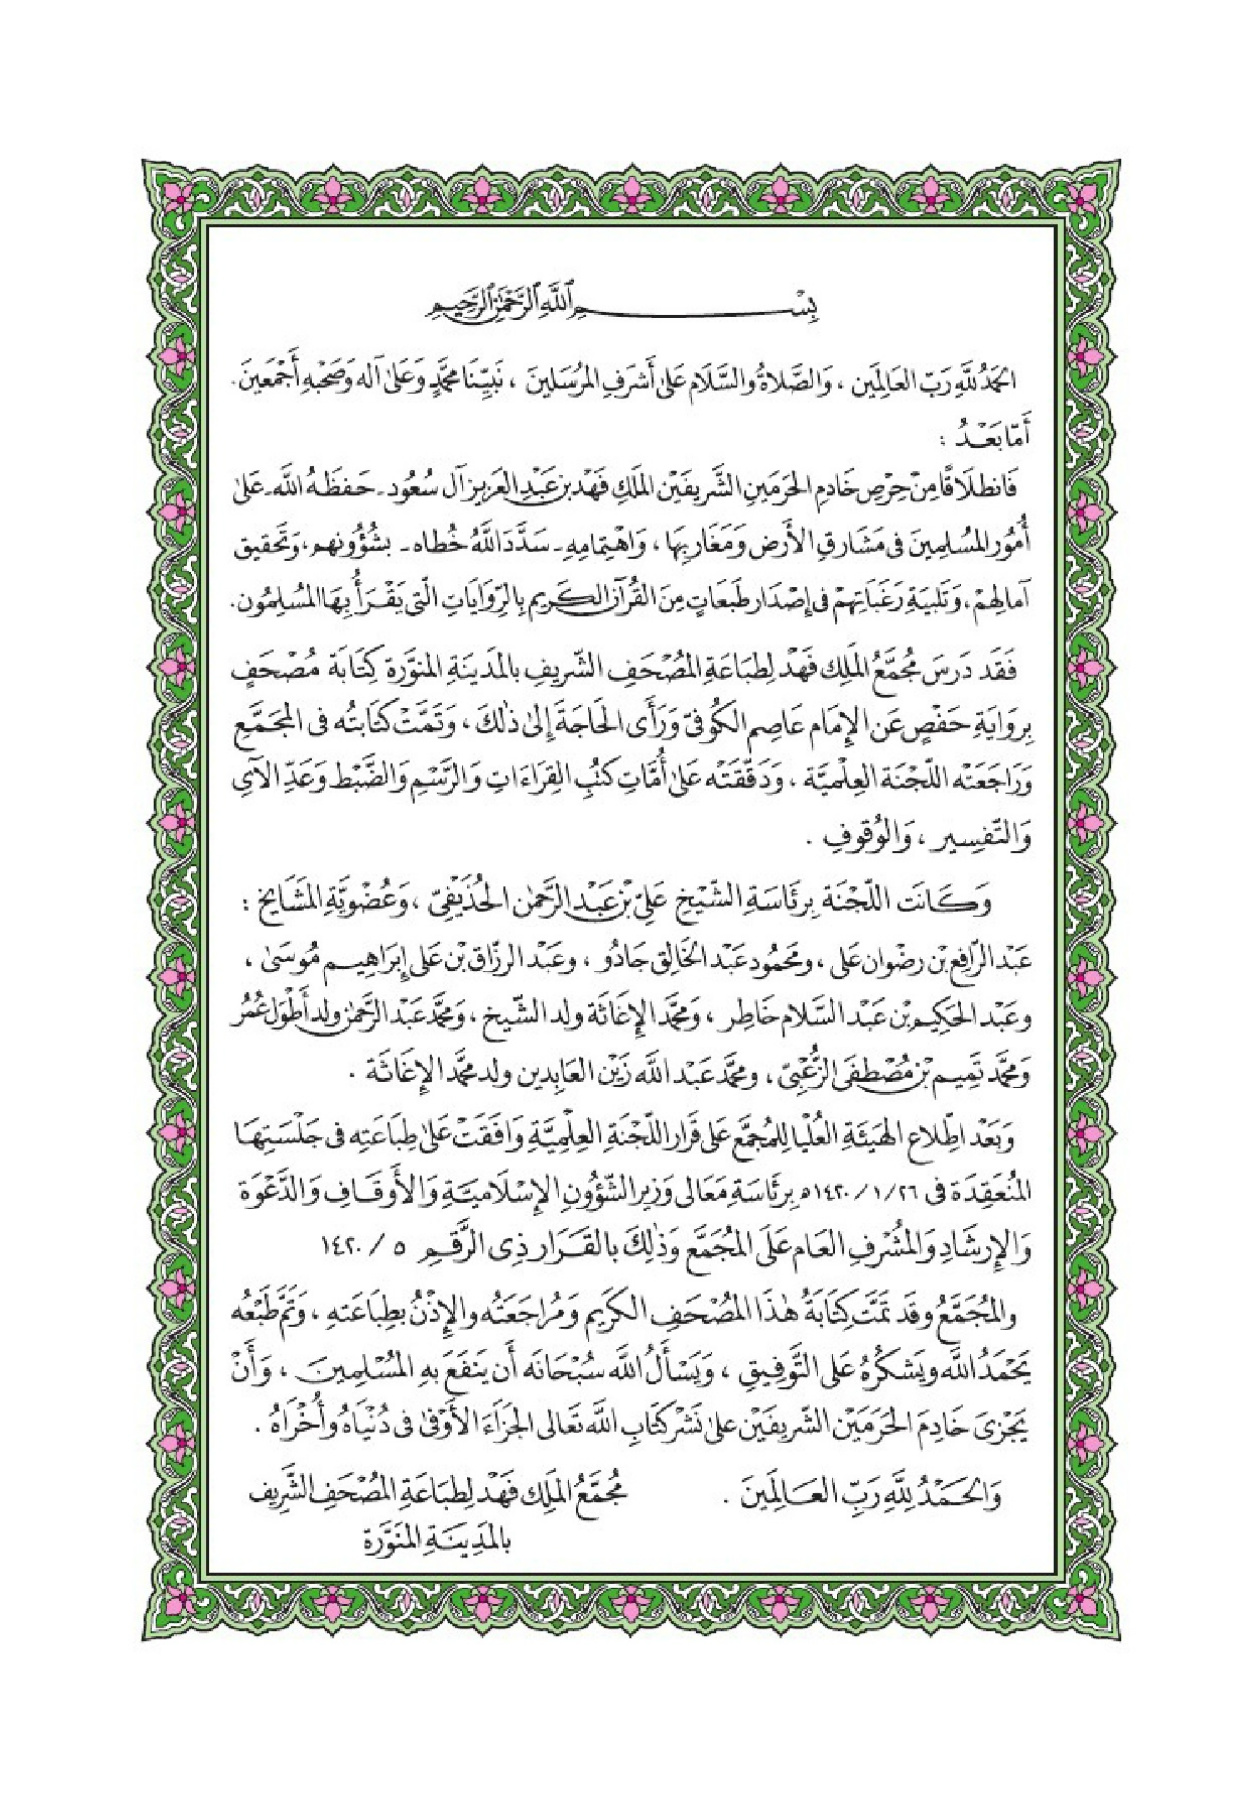 بِسْمِ ٱللَّهِ ٱلرَّحْمَٰنِ ٱلرَّحِيمِ
الحَمْدُ للَّهِ رَبِّ العَالَمِين ، وَالصَّلَاةُ والسَّلَام عَلَىٰ أَشرَفِ المُرْسَلِينَ ، نَبِيِّنَا محَمَّدٍ وَعَلىٰ آله وَصَحْبِهِ أَجْمَعِينَ .
أَمَّا بَعْدُ :
فَانطلَاقًا مِنْ حِرْصِ خَادِمِ الحَرَمَينِ الشَّرِيفَيْنِ المَلِكِ فَهْد بن عَبْدِ العَزِيز آل سُعُود - حَفظَهُ اللَّه - عَلىٰ
أُمُورِ المُسْلِمِينَ فى مَشَارِقِ الأَرض وَمَغَارِبِهَا ، وَاهْتِمَامِهِ - سَدَّدَ اللَّهُ خُطاه - بشُؤُونهم ، وَتَحقيق
آمالِهِمْ ، وَتَلبيَةِ رَغَبَاتِهمْ فى إِصْدَارِ طَبَعَاتٍ مِنَ القُرآنِ الكَريمِ بِالرِّوَايَاتِ الّتى يَقْرَأُ بِهَا المُسْلِمُون .
فَقَد دَرسَ مُجَمَّعُ المَلِك فَهْد لِطبَاعَةِ المُصْحَفِ الشّريفِ بالمَدينَةِ المنوّرَة كِتَابَة مُصْحَفٍ
بِروَايَةِ حَفْصٍ عَن الإِمَام عَاصِمِ الكُوفىّ وَرَأَى الحَاجَة إِلىٰ ذٰلكَ ، وَتَمَّتْ كتَابَتُه فى المجَمَّعِ
وَرَاجَعَتْه اللّجْنَة العِلْميَّة ، وَدَقّقَتْه عَلىٰ أُمَّاتِ كتُبِ القِرَاءَاتِ وَالرَّسْمِ وَالضَّبْط وَعَدِّ الآي
وَالتّفْسِير ، وَالوُقوفِ .
وَكَانَت اللّجْنَة بِرئَاسَةِ الشّيْخ عَلىّ بْن عَبْدِ الرَّحمٰن الحُذَيفِيّ ، وَعُضْويَّةِ المَشَايخ :
عَبْد الرّافِع بْن رضْوان عَلى ، ومَحمُود عَبْد الخَالِق جَادُو ، وعَبْد الرزّاق بْن عَلى إبْرَاهِيم مُوسَىٰ ،
وعَبْد الحَكِيم بْن عَبْد السَّلَام خَاطِر ، وَمحَمَّد الإِغَاثَة ولد الشّيخ ، وَمحَمَّد عَبْد الرَّحمٰن ولد أَطْوَل عُمُر
وَمحَمَّد تَمِيم بْن مُصْطفَى الزُّعْبِىّ ، ومحَمَّد عَبْد اللَّه زَيْن العَابِدين ولد محَمَّد الإِغَاثَة .
وَبَعْد اطّلَاع الهَيئَةِ العُليَا للمُجمَّعِ عَلى قَرَار اللّجْنَةِ العِلْمِيَّةِ وَافَقَتْ عَلىٰ طبَاعَتِه فى جَلْسَتِهَا
المُنعَقِدَة فى ١٤٢٠/١/٢٦هـ بِرئَاسَةِ مَعَالى وَزير الشّؤُونِ الإِسْلَاميَّةِ وَالأَوقَافِ وَالدَّعْوَة
وَالإِرشَادِ وَالمُشْرفِ العَام عَلَى المُجَمَّعِ وَذٰلِكَ بالقَرَار ذِى الرَّقْم ٥ / ١٤٢٠
والمُجَمَّعُ وقَد تَمَّتْ كِتَابَةُ هٰذَا المُصْحَفِ الكَرِيم وَمُرَاجَعَتُه والإِذْنُ بطِبَاعَتهِ ، وَتَمَّ طَبْعُه
يَحْمَدُ اللَّه ويَشكرُهُ عَلى التَّوفِيق ، وَيَسْأَلُ اللَّه سُبْحَانَه أَن يَنفَعَ به المُسْلِمِينَ ، وَأَنْ
يَجْزىَ خَادِمَ الحَرَمَيْن الشّريفَيْن عَلىٰ نَشْر كتَابِ اللَّه تَعَالى الجَزَاءَ الأَوْفَىٰ فى دُنْيَاهُ وأُخْرَاهُ .
وَالحَمْدُ لِلَّهِ رَبِّ العَالَمِينَ .
مُجَمَّعُ المَلِك فَهْد لِطبَاعَةِ المُصْحَفِ الشَّرِيف
بالمَدِينَةِ المنَوَّرَة